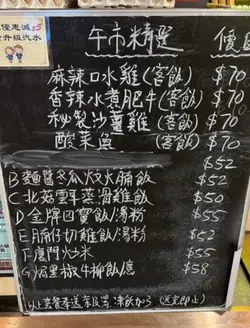 優惠減$5
升級汽水
午市精選 價
麻辣口水雞(客飯) $70
香辣水煮肥牛(客飯) $70
秘製沙薑雞(客飯) $70
酸菜魚 (客飯) $70
$52
B 麵醬冬瓜火腩飯 $52
C 北菇雲耳蒸滑雞飯 $50
D 金牌四寶飯/湯粉 $55
E 腩仔切雞飯/湯粉 $52
F 廈門炒米 $55
G 燘黑椒牛柳飯/意 $58
套餐奉送 凍飲加3 (送完即止)